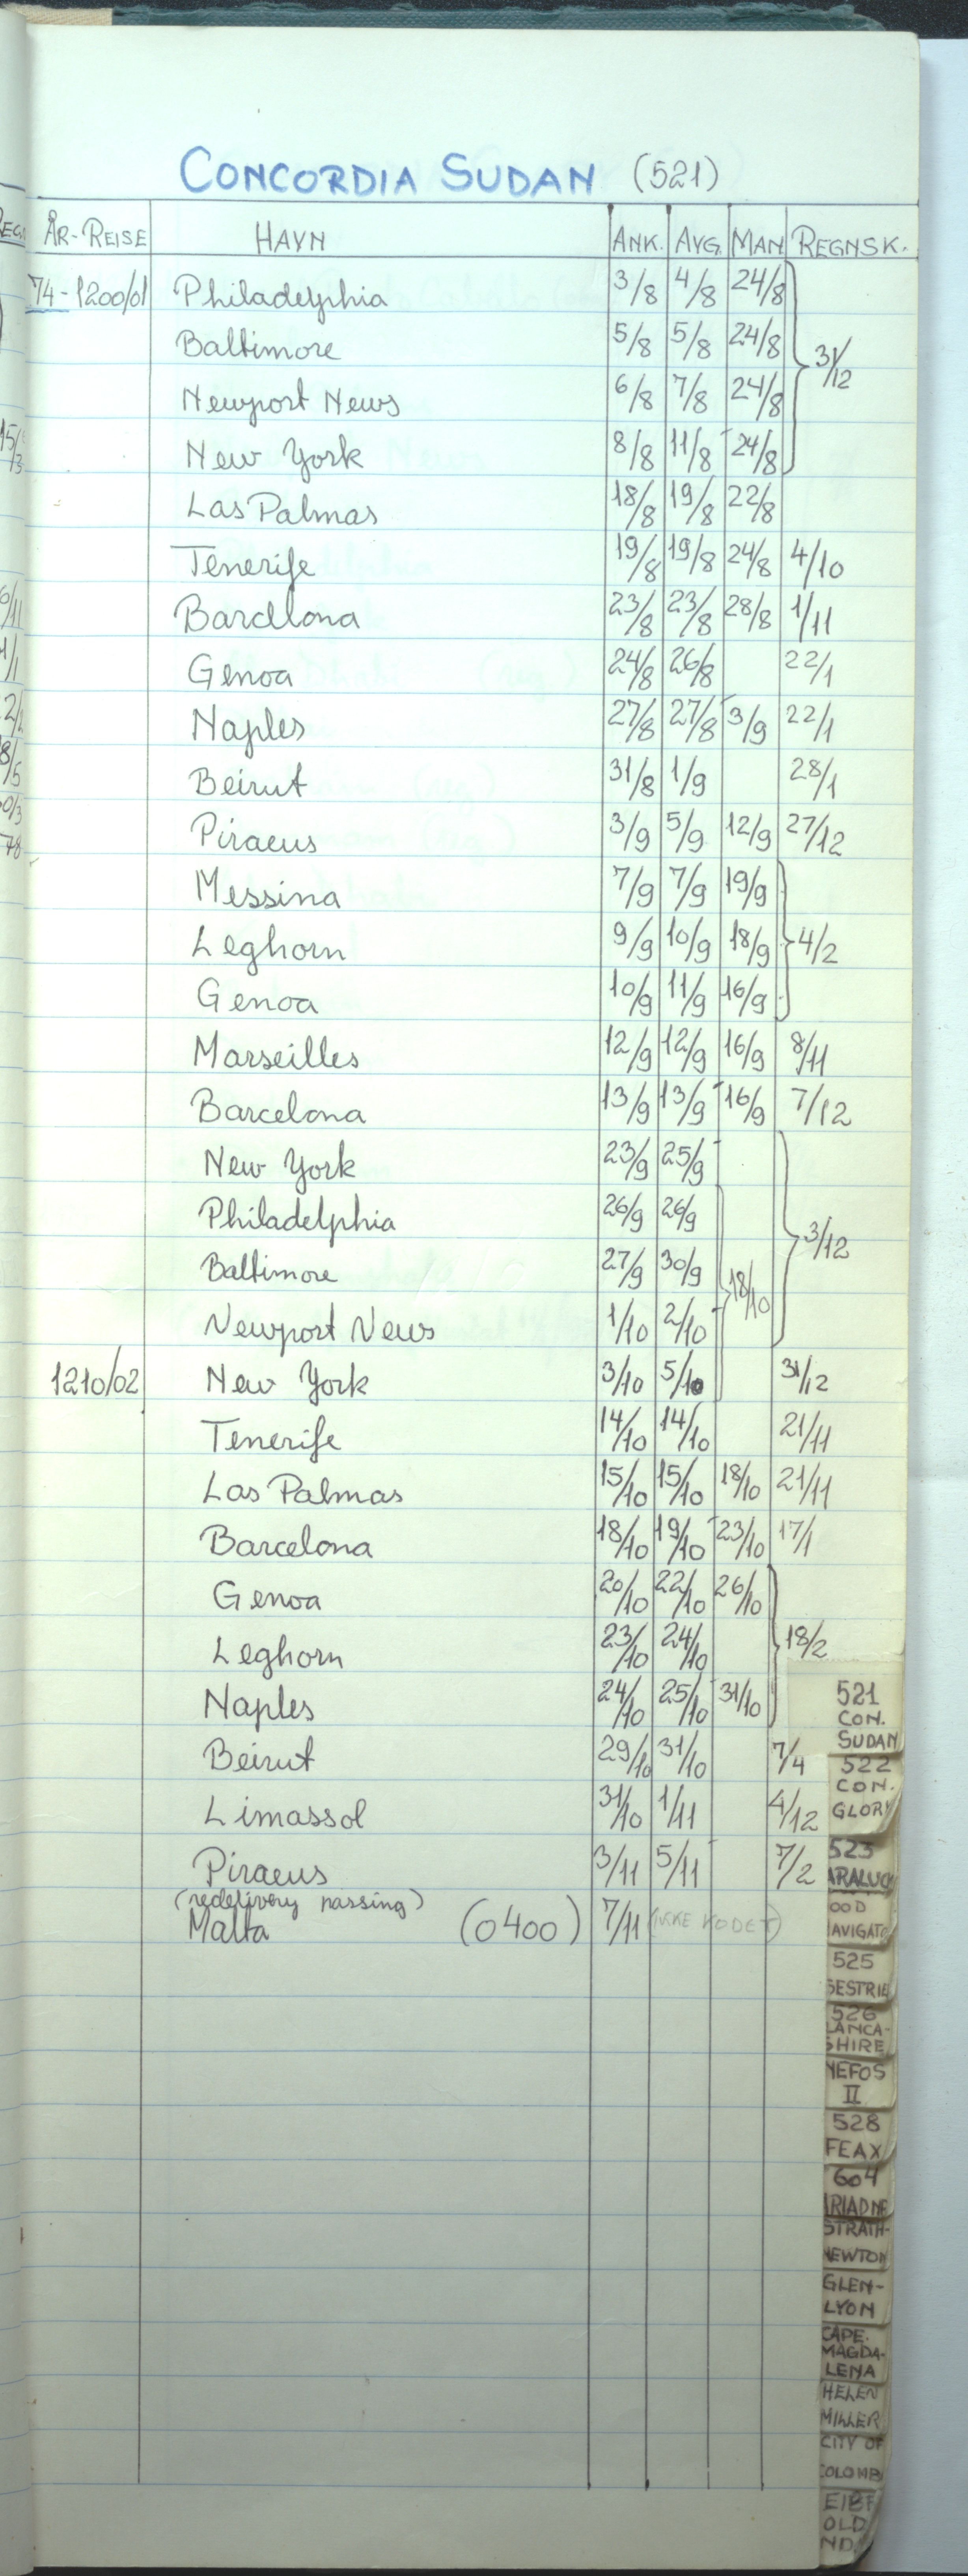 CONCORDIA SUDAN (521)
ÅR-REISE HAVN ANK. AVG. MAN REGNSK.
74-1200/01 Philadelphia 3/8 4/8 24/8
Baltimore 5/8 5/8 24/8 31/12
Newport News 6/8 7/8 24/8
New York 8/8 11/8 24/8
Las Palmas 18/8 19/8 22/8
Tenerife 19/8 19/8 24/8 4/10
Barcelona 23/8 23/8 28/8 1/11
Genoa 24/8 26/8 22/1
Naples 27/8 27/8 3/9 22/1
Beirut 31/8 1/9 28/1
Piraeus 3/9 5/9 12/9 27/12
Messina 7/9 7/9 19/9
Leghorn 9/9 10/9 18/9 4/2
Genoa 10/9 11/9 16/9
Marseilles 12/9 12/9 16/9 8/11
Barcelona 13/9 13/9 16/9 7/12
New York 23/9 25/9
Philadelphia 26/9 26/9 3/12
Baltimore 27/9 30/9 18/10
Newport News 1/10 2/10
1210/02 New York 3/10 5/10 31/12
Tenerife 14/10 14/10 21/11
Las Palmas 15/10 15/10 18/10 21/11
Barcelona 18/10 19/10 23/10 17/1
Genoa 20/10 22/10 26/10
Leghorn 23/10 24/10 18/2
Naples 24/10 25/10 31/10
Beirut 29/10 31/10 7/4
Limassol 31/10 1/11 4/12
Piraeus 3/11 5/11 7/2
(redelivery passing)
Malta (0400) 7/11 (IKKE KODET)
521
CON.
SUDAN
522
CON.
GLORY
523
ARALUC
OOD
AVIGATO
525
SESTRIE
526
LANCA-
SHIRE
NEFOS
II
528
FEAX
604
ARIADNE
STRATH-
NEWTON
GLEN-
LYON
CAPE.
MAGDA-
LENA
HELEN
MILLER
CITY OF
COLOMB
OLD
ND